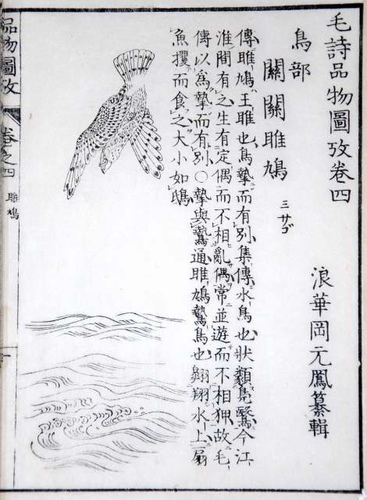 毛詩品物圖攷卷四
浪華岡元鳳纂輯
鳥部
關關雎鳩
ミサゴ
傳雎鳩王雎也鳥摯而有別集傳水鳥也狀類鳧鷖今江
淮間有之生有定偶而不相亂偶常並遊而不相狎故毛
傳以為摯而有別○摯與鷙通雎鳩鷙鳥也翱翔水上扇
魚攫而食之大小如鴟
品物圖攷
卷之四
雎鳩
一